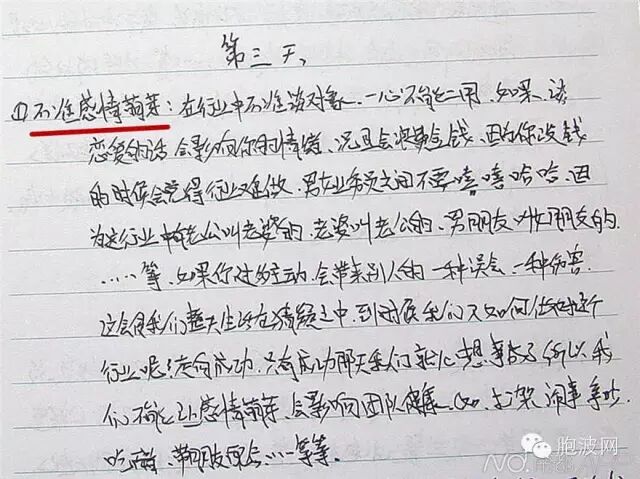 第三天
(1)不准感情萌芽：在行业中不准谈对象、一心不能二用、如果、谈
恋爱的话会影响你的情绪、况且会浪费金钱、因为你没钱
的时候会觉得行业难做、男女业务员之间不要嘻嘻哈哈、因
为这行业中有老公叫老婆的、老婆叫老公的、男朋友叫女朋友的
……等、如果你过于主动、会带来别人的一种误会、一种伤害
这会使我们整天生活在猜疑之中、到时候我们又如何
行业呢？走向成功、只有成功那天我们就心想事成了所以我
们不能让感情萌芽、会影响团队 如、打架闹事
吃醋、 ……等等.
胞波网
NO.